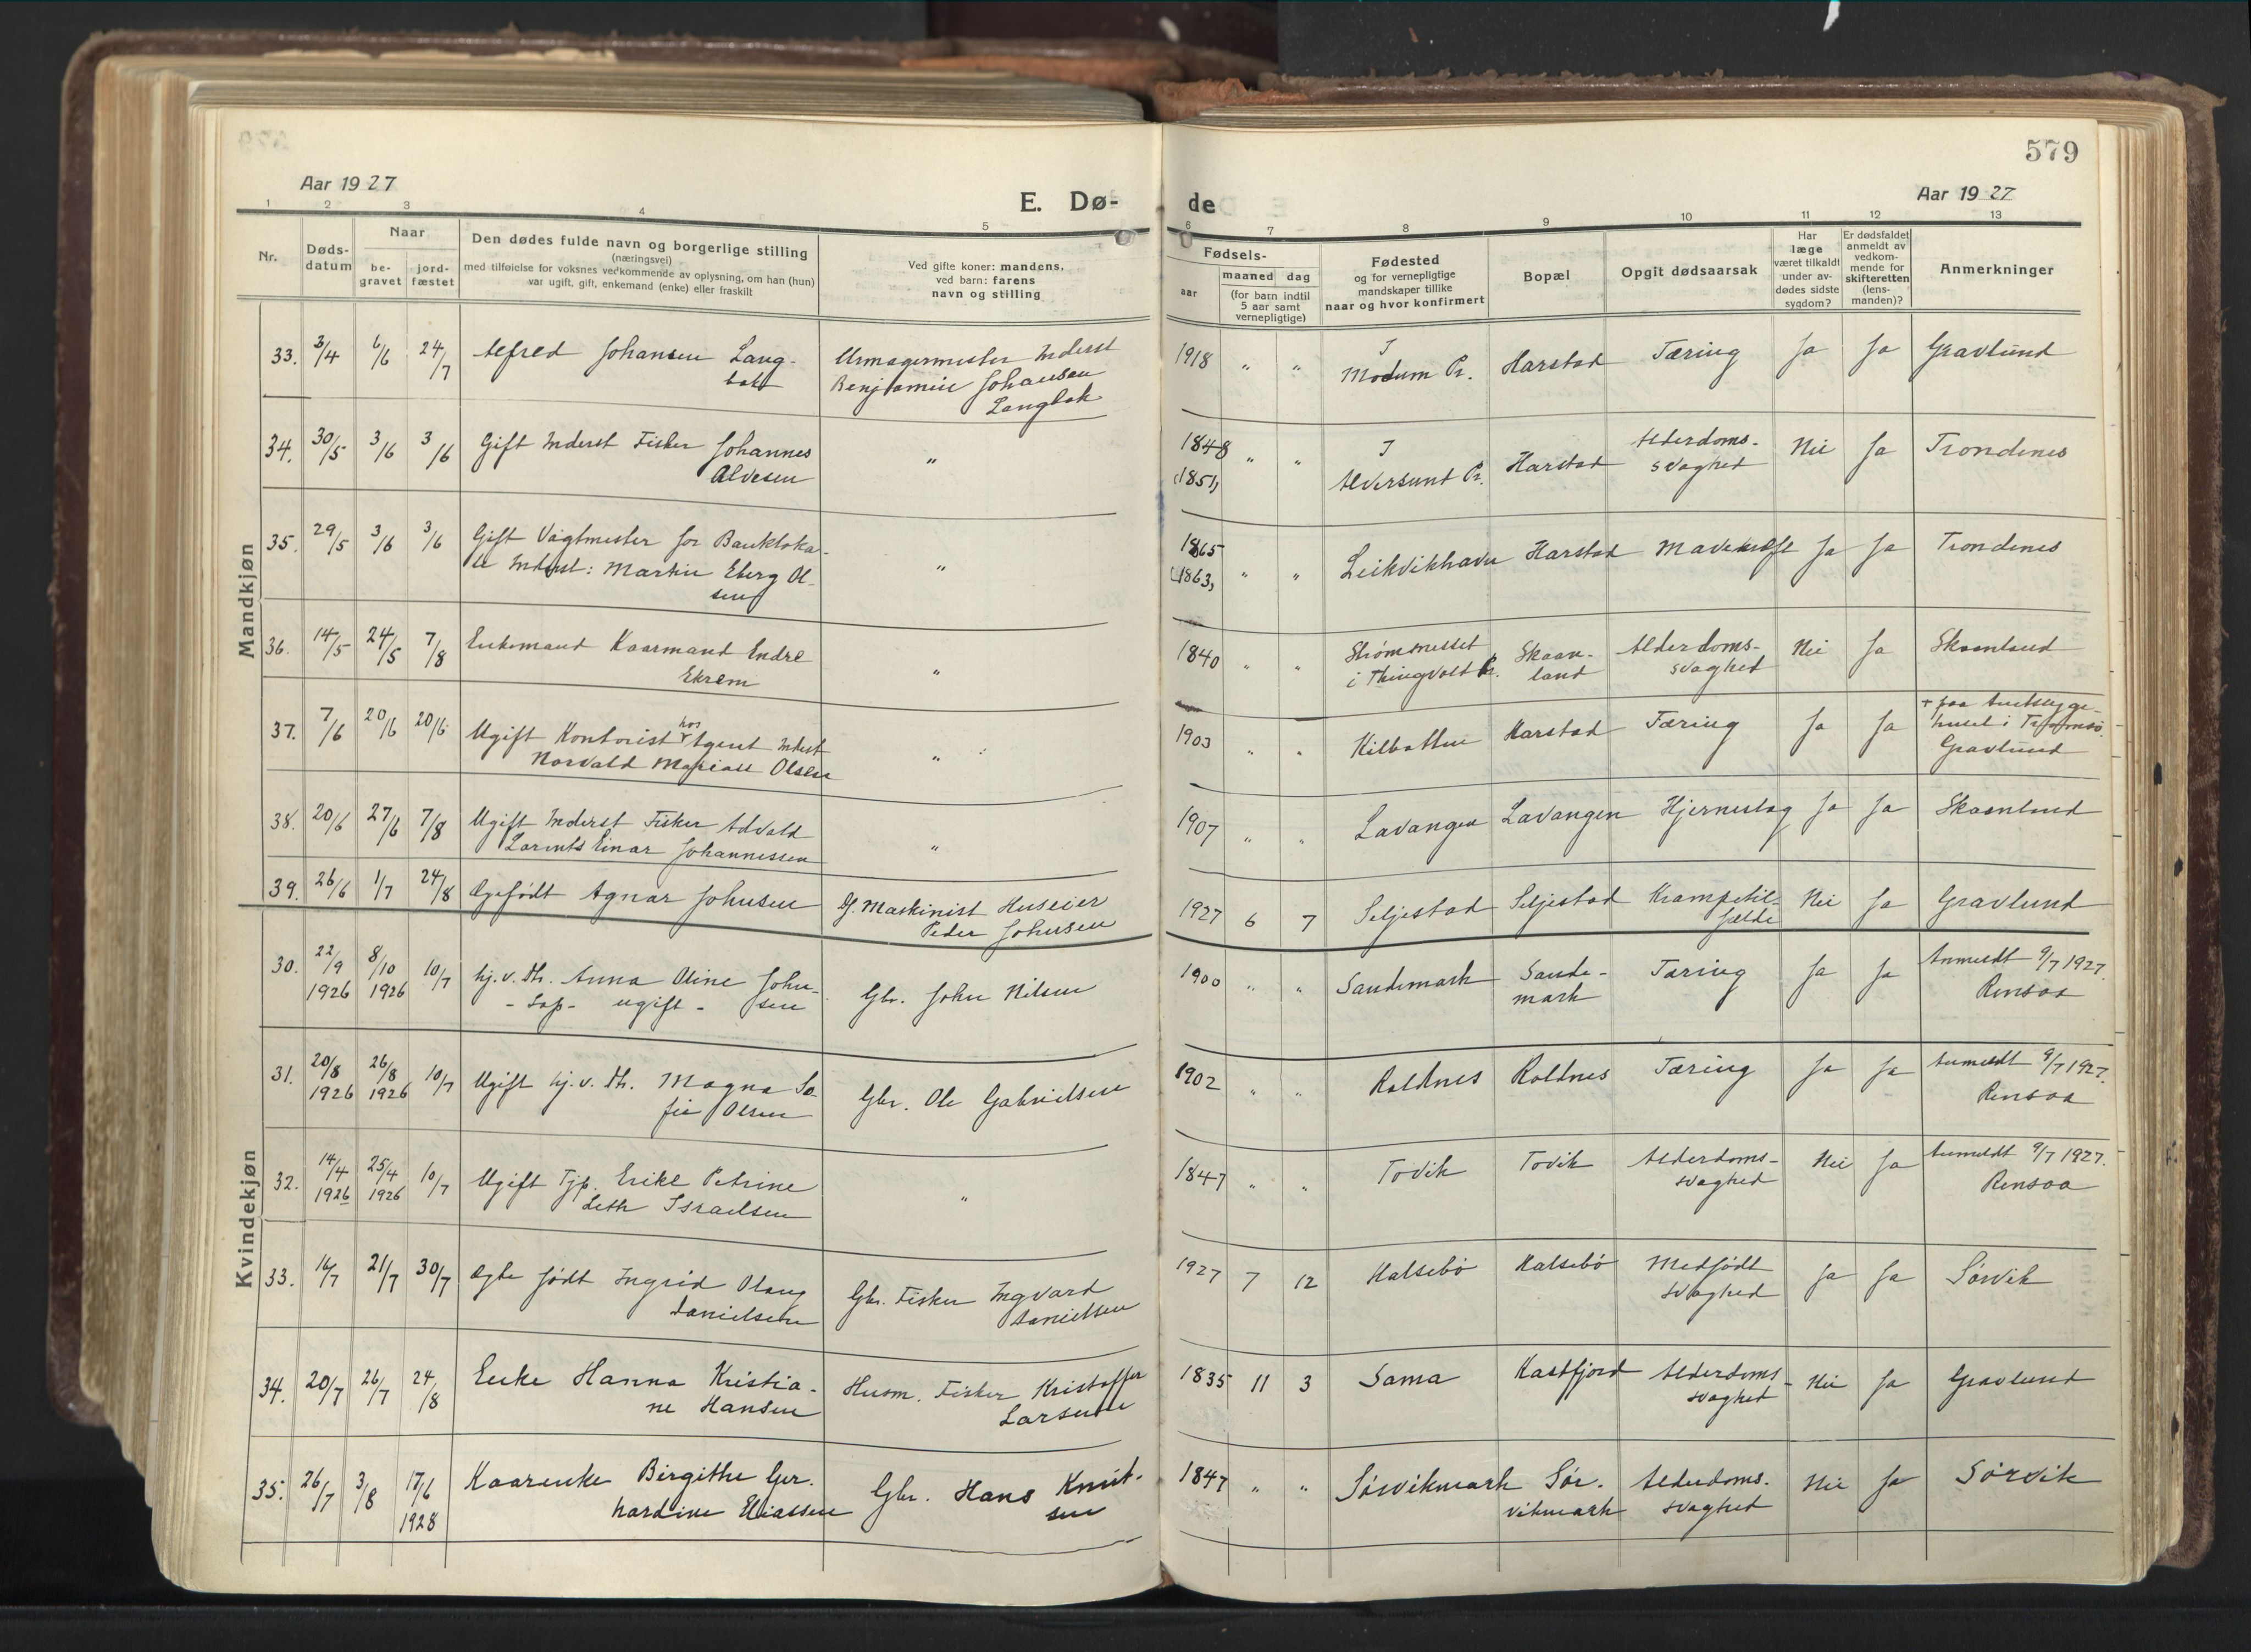 579
Aar 1927
E. Dø-
de
Aar 1927
1 2 3 4 5
6 7 8 9 10 11 12 13
Nr.
Døds-
datum
Naar
be-
gravet
jord-
fæstet
Den dødes fulde navn og borgerlige stilling
(næringsvei)
med tilføielse for voksnes vedkommende av oplysning, om han (hun)
var ugift, gift, enkemand (enke) eller fraskilt
Ved gifte koner: mandens,
ved barn: farens
navn og stilling
Fødsels-
aar
maaned dag
(for barn indtil
5 aar samt
vernepligtige)
Fødested
og for vernepligtige
mandskaper tillike
naar og hvor konfirmert
Bopæl
Opgit dødsaarsak
Har
læge
været tilkaldt
under av-
dødes sidste
sygdom?
Er dødsfaldet
anmeldt av
vedkom-
mende for
skifteretten
(lens-
manden)?
Anmerkninger
Mandkjøn
33. 3/4 6/6 24/7 Alfred Johansen Lang-
bak
Urmagermester Inderst
Benjamin Johansen
Langbak
1918 " " I
Modum Pr. Harstad Tæring Ja Ja Gravlund
34. 30/5 3/6 3/6 Gift Inderst Fisker Johannes
Alvesen
"
1848
(1851) " " I
Alversund Pr. Harstad Alderdoms-
svaghed Nei Ja Trondenes
35. 29/5 3/6 3/6 Gift Vagtmester for Bankloka-
le Inderst: Martin Eberg Ol-
sen
"
1865
(1863) " " Leikvikhavn Harstad Mavekræft Ja Ja Trondenes
36. 14/5 24/5 7/8 Enkemand Kaarmand Endre
Ekrem
"
1840 " " Strømsnesset
i Thingvold Pr. Skaan-
land Alderdoms-
svaghed Nei Ja Skaanland
37. 7/6 20/6 20/6 Ugift Kontorist hos Agent Inderst
Norvald Mariall Olsen
"
1903 " " Kilbotten Harstad Tæring Ja Ja + paa Amtssyge-
huset i Tromsø.
Gravlund
38. 20/6 27/6 7/8 Ugift Inderst Fisker Advald
Lorents Einar Johannessen
"
1907 " " Lavangen Lavangen Hjerneslag Ja Ja Skaanland
39. 26/6 1/7 24/8 Ægtefødt Agnar Johnsen G. Maskinist Huseier
Peder Johnsen
1927 6 7 Seljestad Seljestad Krampetil-
fælde Nei Ja Gravlund
Kvindekjøn
30. 22/9
1926 8/10
1926 10/7 hj.v. Dtr. Anna Oline John-
- Lap - ugift - sen
Gbr. John Nilsen
1900 " " Sandemark Sande-
mark Tæring Ja Ja Anmeldt 9/7 1927.
Rensaa
31. 20/8
1926 26/8
1926 10/7 Ugift hj.v. Dtr. Magna So-
fie Olsen
Gbr. Ole Gabrielsen
1902 " " Roldnes Roldnes Tæring Ja Ja Anmeldt 9/7 1927.
Rensaa
32. 14/4
1926 25/4
1926 10/7 Ugift Tjp. Erike Petrine
Leth Israelsen
"
1847 " " Tovik Tovik Alderdoms-
svaghed Nei Ja Anmeldt 9/7 1927.
Rensaa
33. 16/7 21/7 30/7 Ægte født Ingrid Olaug
Danielsen
Gbr. Fisker Ingvard
Danielsen
1927 7 12 Halsebø Halsebø Medfødt
svaghed Ja Ja Sørvik
34. 20/7 26/7 24/8 Enke Hanna Kristia-
ne Hansen
Husm. Fisker Kristoffer
Larsen
1835 11 3 Sama Kastfjord Alderdoms-
svaghed Nei Ja Gravlund
35. 26/7 3/8 17/6
1928 Kaarenke Birgithe Ger-
hardine Eliassen
Gbr. Hans Knut-
sen
1847 " " Sørvikmark Sør-
vikmark Alderdoms-
svaghed Nei Ja Sørvik